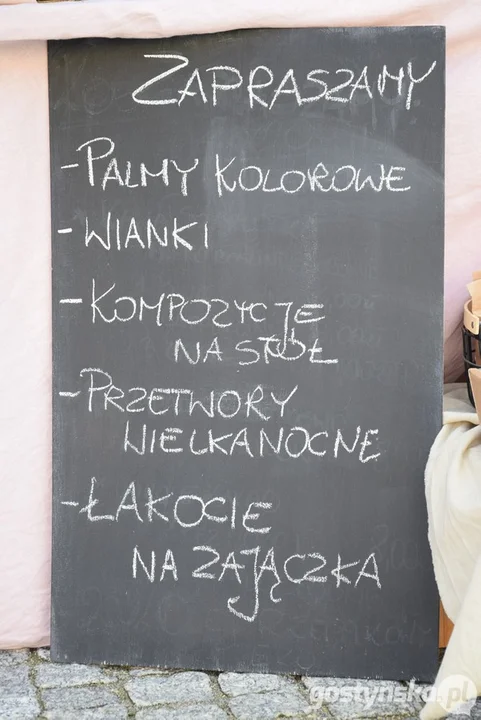 ZAPRASZAMY
- PALMY KOLOROWE
- WIANKI
- KOMPOZYCJE
NA STÓŁ
- PRZETWORY
WIELKANOCNE
- ŁAKOCIE
NA ZAJĄCZKA
gostynska.pl